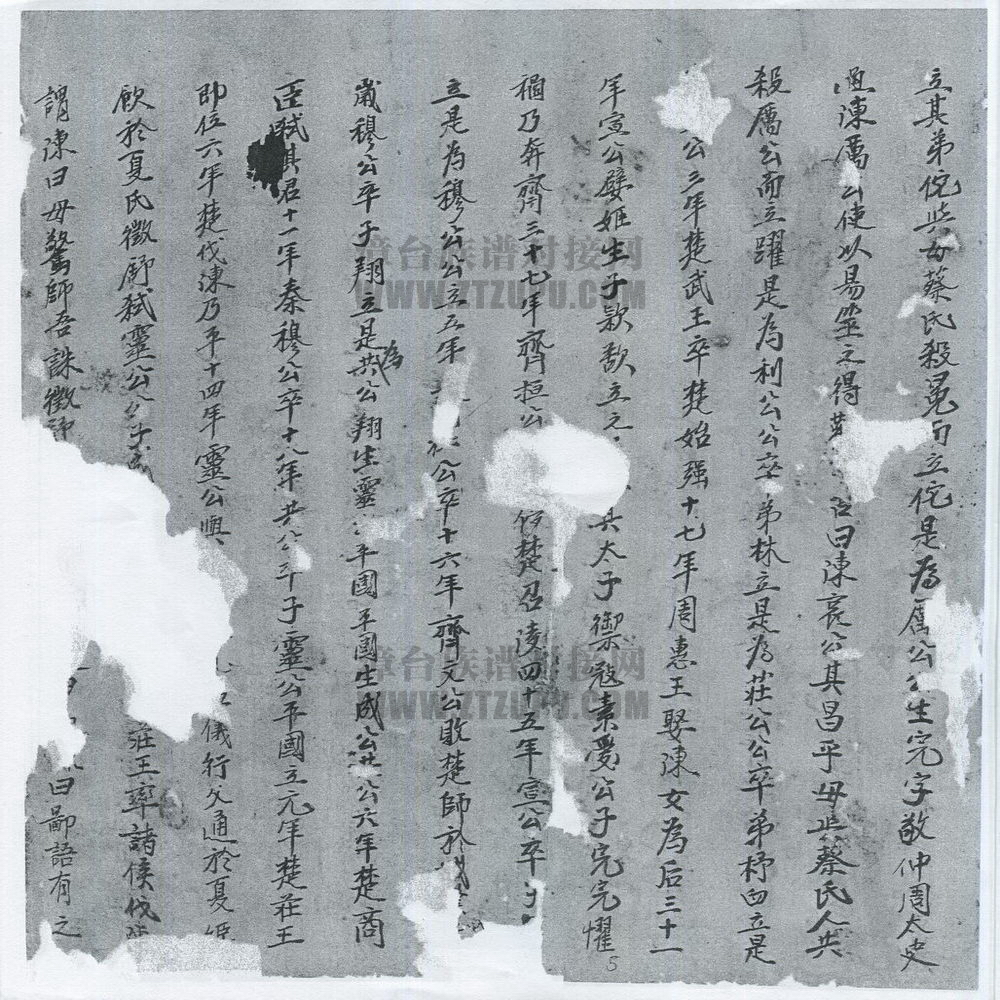 立其弟佗其母蔡氏殺免而立佗是為厲公公生完字敬仲周太史
過陳厲公使以易筮之得 曰陳衰公其昌乎母其蔡氏人共
殺厲公而立躍是為利公公卒弟林立是為莊公公卒弟杵臼立是
公三年楚武王卒楚始强十七年周惠王娶陳女為后三十一
年宣公嬖姬生子款款立之 其太子禦寇素愛公子完完懼
禍乃奔齊三十七年齊桓公 伐楚召陵四十五年宣公卒子
立是為穆公公立五年 公卒十六年齊文公敗楚師於城
歲穆公卒子翔立是為共公翔生靈 平國平國生成公共公六年楚商
臣弒其君十一年秦穆公卒十八年共公卒子靈公平國立元年楚莊王
即位六年楚伐陳乃平十四年靈公與 儀行父通於夏姬
飲於夏氏徵舒弒靈公公子 莊王率諸侯伐
謂陳曰毋驚師吾誅徵舒 曰鄙語有之
5
章台族谱对接网
WWW.ZTZUPU.COM
章台族谱对接网
WWW.ZTZUPU.COM